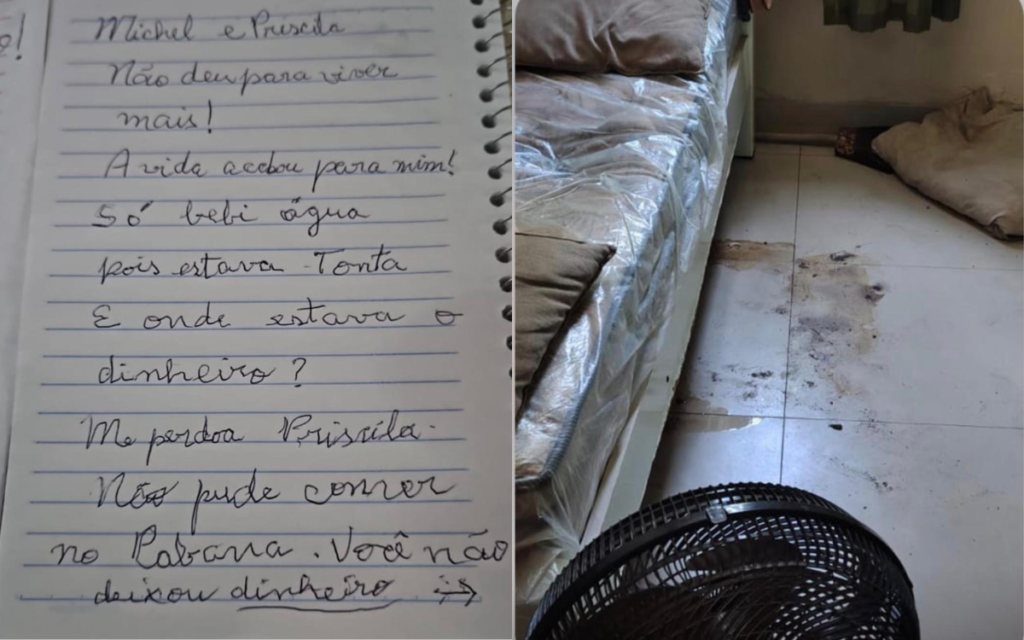 o!
Michel e Priscila
Não deu para viver
mais!
A vida acabou para mim!
Só bebi água
pois estava Tonta
E onde estava o
dinheiro?
Me perdoa Priscila.
Não pude comer
no Cabana. Você não
deixou dinheiro